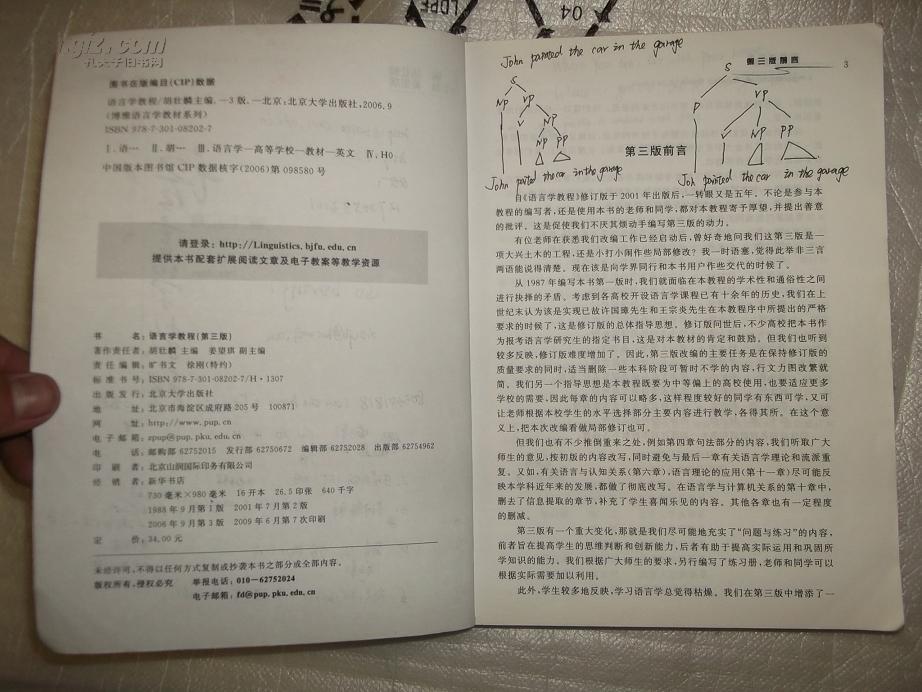 LDPE
04
孔夫子旧书网
图书在版编目(CIP)数据
语言学教程/胡壮麟主编.—3版.—北京:北京大学出版社,2006.9
(博雅语言学教材系列)
ISBN 978-7-301-08202-7
Ⅰ.语… Ⅱ.胡… Ⅲ.语言学—高等学校—教材—英文 Ⅳ.H0
中国版本图书馆CIP数据核字(2006)第098580号
请登录:http://Linguistics.bjfu.edu.cn
提供本书配套扩展阅读文章及电子教案等教学资源
书名:语言学教程(第三版)
著作责任者:胡壮麟 主编 姜望琪 副主编
责任编辑:旷书文 徐刚(特约)
标准书号:ISBN 978-7-301-08202-7/H·1307
出版发行:北京大学出版社
地址:北京市海淀区成府路205号 100871
网址:http://www.pup.cn
电子邮箱:zpup@pup.pku.edu.cn
电话:邮购部 62752015 发行部 62750672 编辑部 62752028 出版部 62754962
印刷者:北京山润国际印务有限公司
经销者:新华书店
730毫米×980毫米 16开本 26.5印张 640千字
1988年9月第1版 2001年7月第2版
2006年9月第3版 2009年6月第7次印刷
定价:34.00元
未经许可,不得以任何方式复制或抄袭本书之部分或全部内容。
版权所有,侵权必究 举报电话:010-62752024
电子邮箱:fd@pup.pku.edu.cn
John painted the car in the garage
第三版前言 3
S
NP VP
V NP
NP PP
John painted the car in the garage
S
VP
V NP PP
John painted the car in the garage
第三版前言
自《语言学教程》修订版于2001年出版后,一转眼又是五年。不论是参与本
教程的编写者,还是使用本书的老师和同学,都对本教程寄予厚望,并提出善意
的批评。这是促使我们不厌其烦动手编写第三版的动力。
有位老师在获悉我们改编工作已经启动后,曾好奇地问我们这第三版是一
项大兴土木的工程,还是小打小闹作些局部修改?我一时语塞,觉得此举非三言
两语能说得清楚。现在该是向学界同行和本书用户作些交代的时候了。
从1987年编写本书第一版时,我们就面临在本教程的学术性和通俗性之间
进行抉择的矛盾。考虑到各高校开设语言学课程已有十余年的历史,我们在上
世纪末认为该是实现已故许国璋先生和王宗炎先生在本教程序中所提出的严格
要求的时候了,这是修订版的总体指导思想。修订版问世后,不少高校把本书作
为报考语言学研究生的指定书目,这是对本教材的肯定和鼓励。但我们也听到
较多反映,修订版难度增加了。因此,第三版改编的主要任务是在保持修订版的
质量要求的同时,适当删除一些本科阶段可暂时不学的内容,行文力图改繁就
简。我们另一个指导思想是本教程既要为中等偏上的高校使用,也要适应更多
学校的需要,因此每章的内容可以略多,这样程度较好的同学有东西可学,又可
让老师根据本校学生的水平选择部分主要内容进行教学,各得其所。在这个意
义上,把本次改编看做局部修订也可。
但我们也有不少推倒重来之处,例如第四章句法部分的内容,我们听取广大
师生的意见,按初版的内容改写,同时避免与最后一章有关语言学理论和流派重
复。又如,有关语言与认知关系(第六章),语言理论的应用(第十一章)尽可能反
映本学科近年来的发展,都做了彻底改写。在语言学与计算机关系的第十章中,
删去了信息提取的章节,补充了学生喜闻乐见的内容。其他各章也有一定程度
的删减。
第三版有一个重大变化,那就是我们尽可能地充实了“问题与练习”的内容,
前者旨在提高学生的思维判断和创新能力,后者有助于提高实际运用和巩固所
学知识的能力。我们根据广大师生的要求,另行编写了练习册,老师和同学可以
根据实际需要加以利用。
此外,学生较多地反映,学习语言学总觉得枯燥。我们在第三版中增添了一